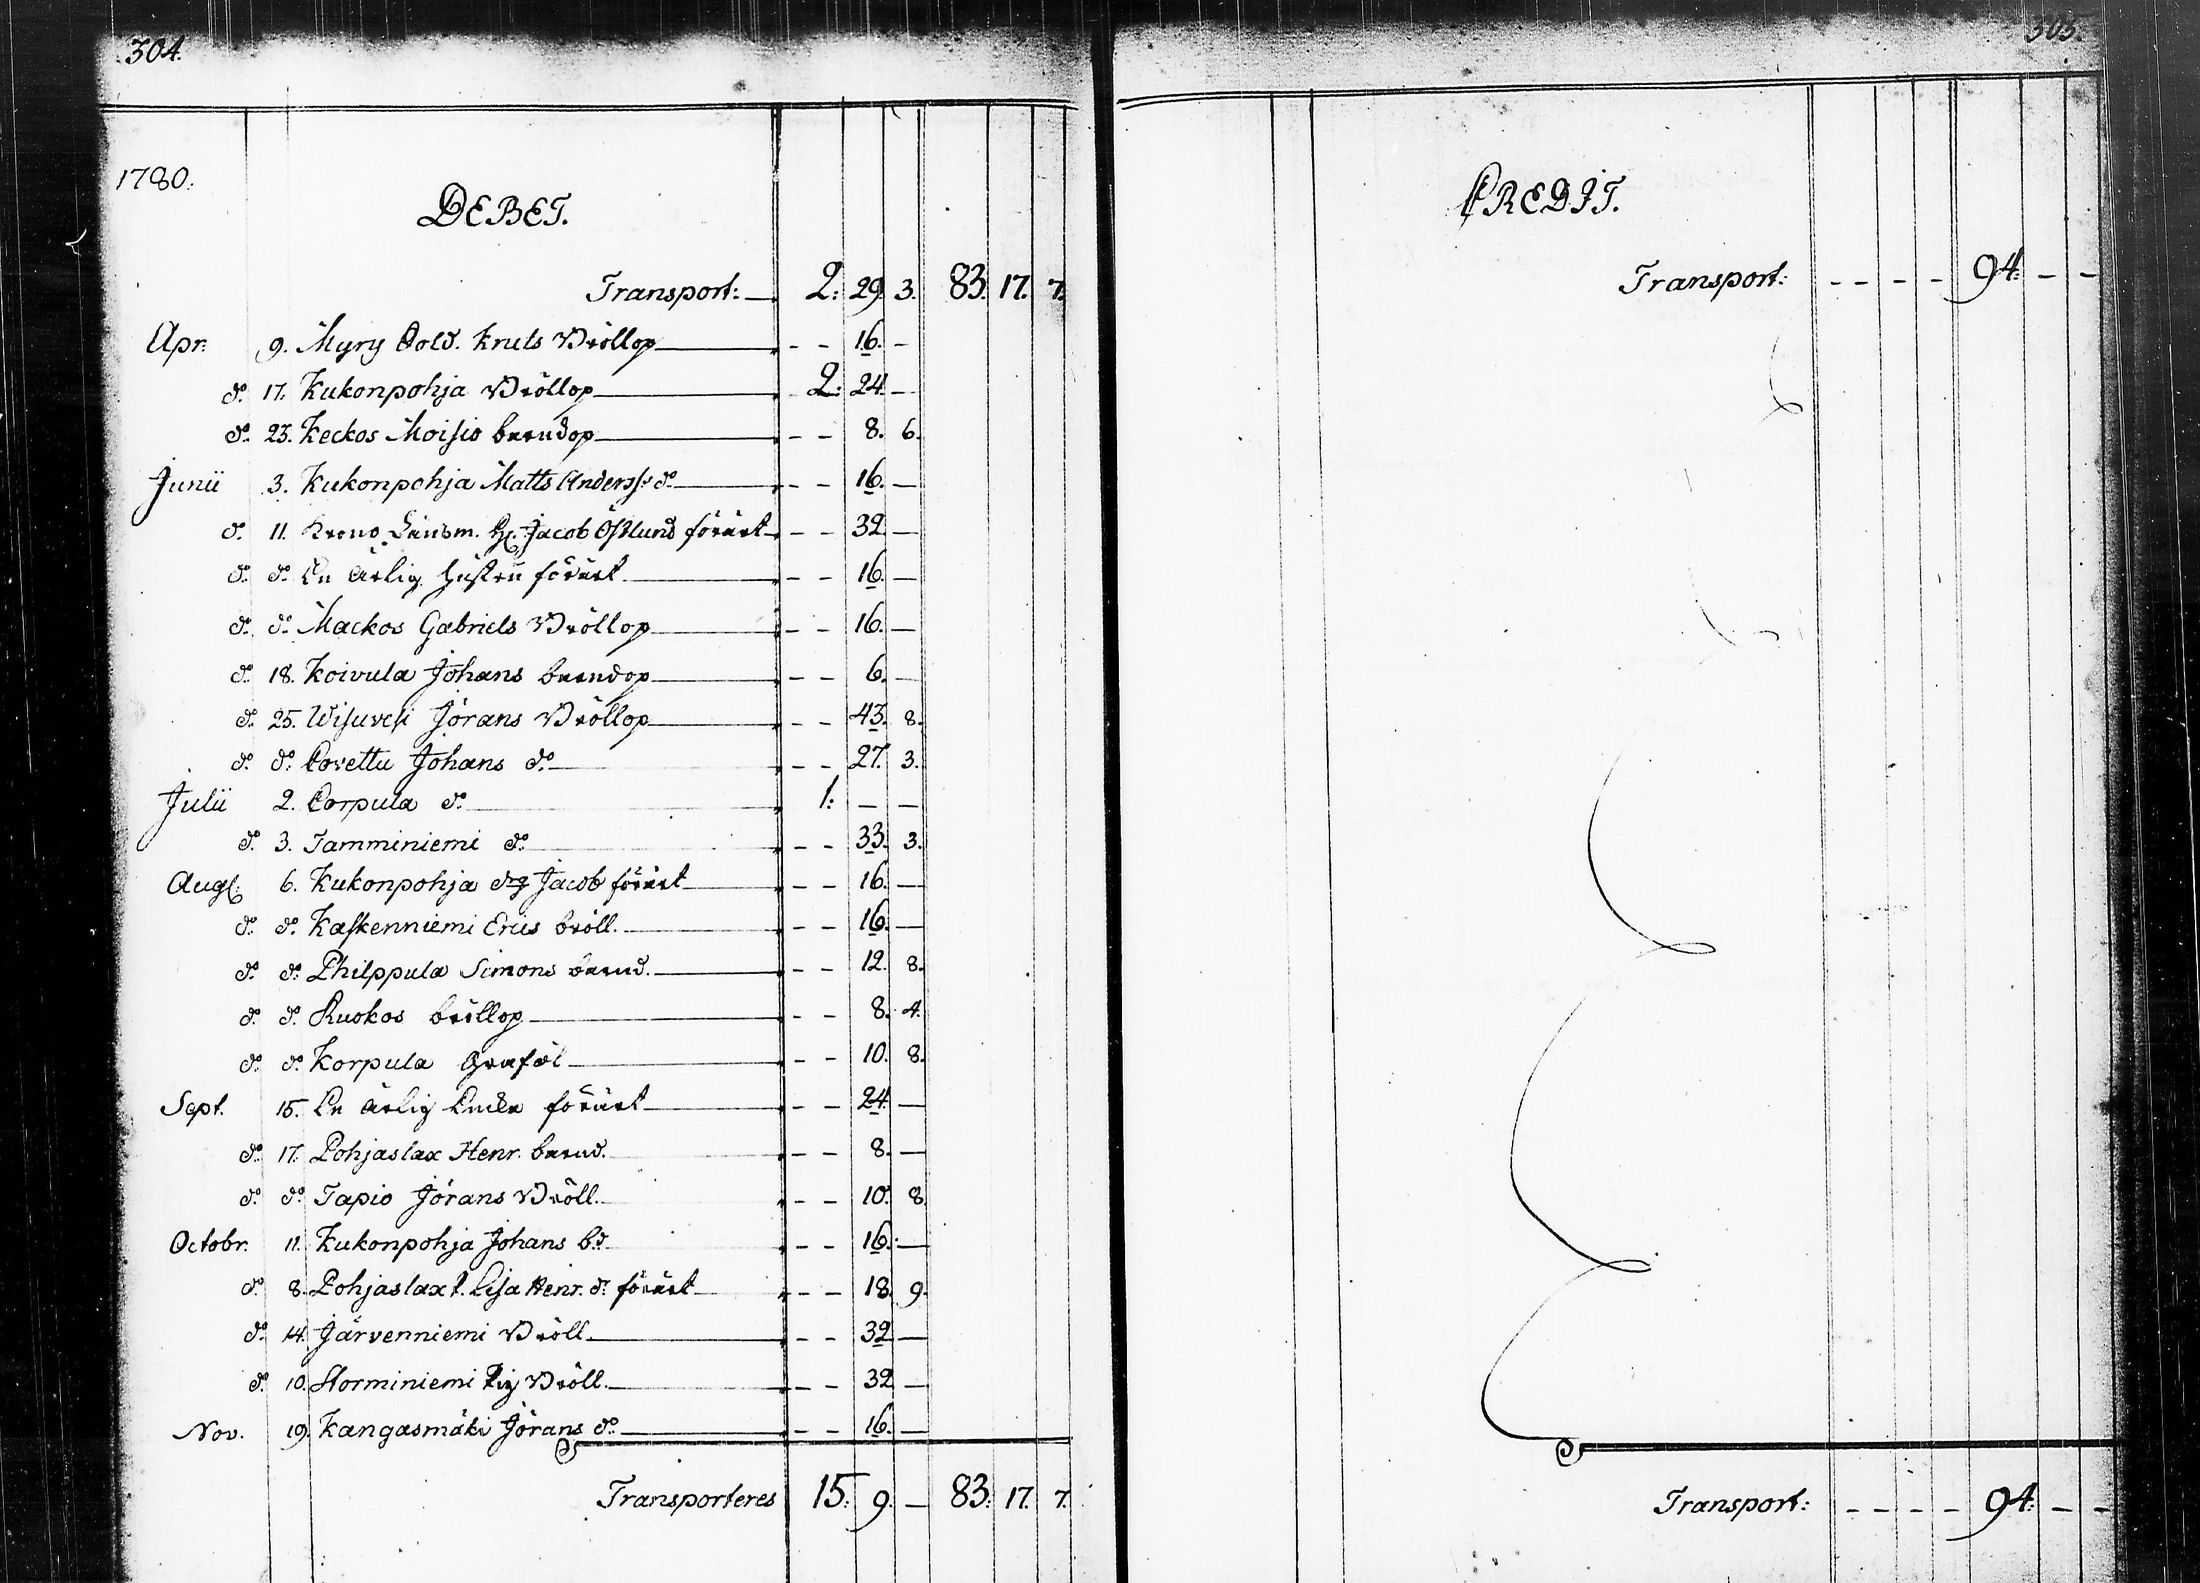 304.
1780.
DEBET.
Transport: 2: 29. 3. 83. 17. 7.
Apr. 9. Myry Sold. Knuts Bröllop - - 16. -
do. 17. Kukonpohja Bröllop 2: 24. -
do. 23. Keckos Moisio barndop - - 8. 6.
Junii 3. Kukonpohja Matts Anderss. do - - 16. -
do. 11. Krono Länsm. H. Jacob Östlund förärt - - 32. -
do. do. En ärlig hustru förärt - - 16. -
do. do. Mackos Gabriels Bröllop - - 16. -
do. 18. Koivula Johans barndop - - 6. -
do. 25. Wisuvesi Jörans Bröllop - - 43. 8.
do. do. Covettu Johans do. - - 27. 3.
Julii 2. Corpula do. 1: - -
do. 3. Tamminiemi do. - - 33. 3.
Aug. 6. Kukonpohja drg Jacob förärt - - 16. -
do. do. Kaskenniemi Erics bröll. - - 16. -
do. do. Philppula Simons barnd. - - 12. 8.
do. do. Ruokos bröllop - - 8. 4.
do. do. Korpula Grafäl - - 10. 8.
Sept. 15. En ärlig Encka förärt - - 24. -
do. 17. Pohjaslax Henr. barnd. - - 8. -
do. do. Tapio Jörans Bröll. - - 10. 8.
Octobr. 11. Kukonpohja Johans b.d. - - 16. -
do. 8. Pohjaslax Lisa Henr. dr. förärt - - 18. 9.
do. 14. Järvenniemi Bröll. - - 32. -
do. 10. Horminiemi Bröll. - - 32 -
Nov. 19. Kangasmäki Jörans do. - - 16. -
Transporteres 15: 9. - 83: 17. 7.
305.
CREDIT.
Transport: - - - - 94: - -
Transport: - - - - 94: - -